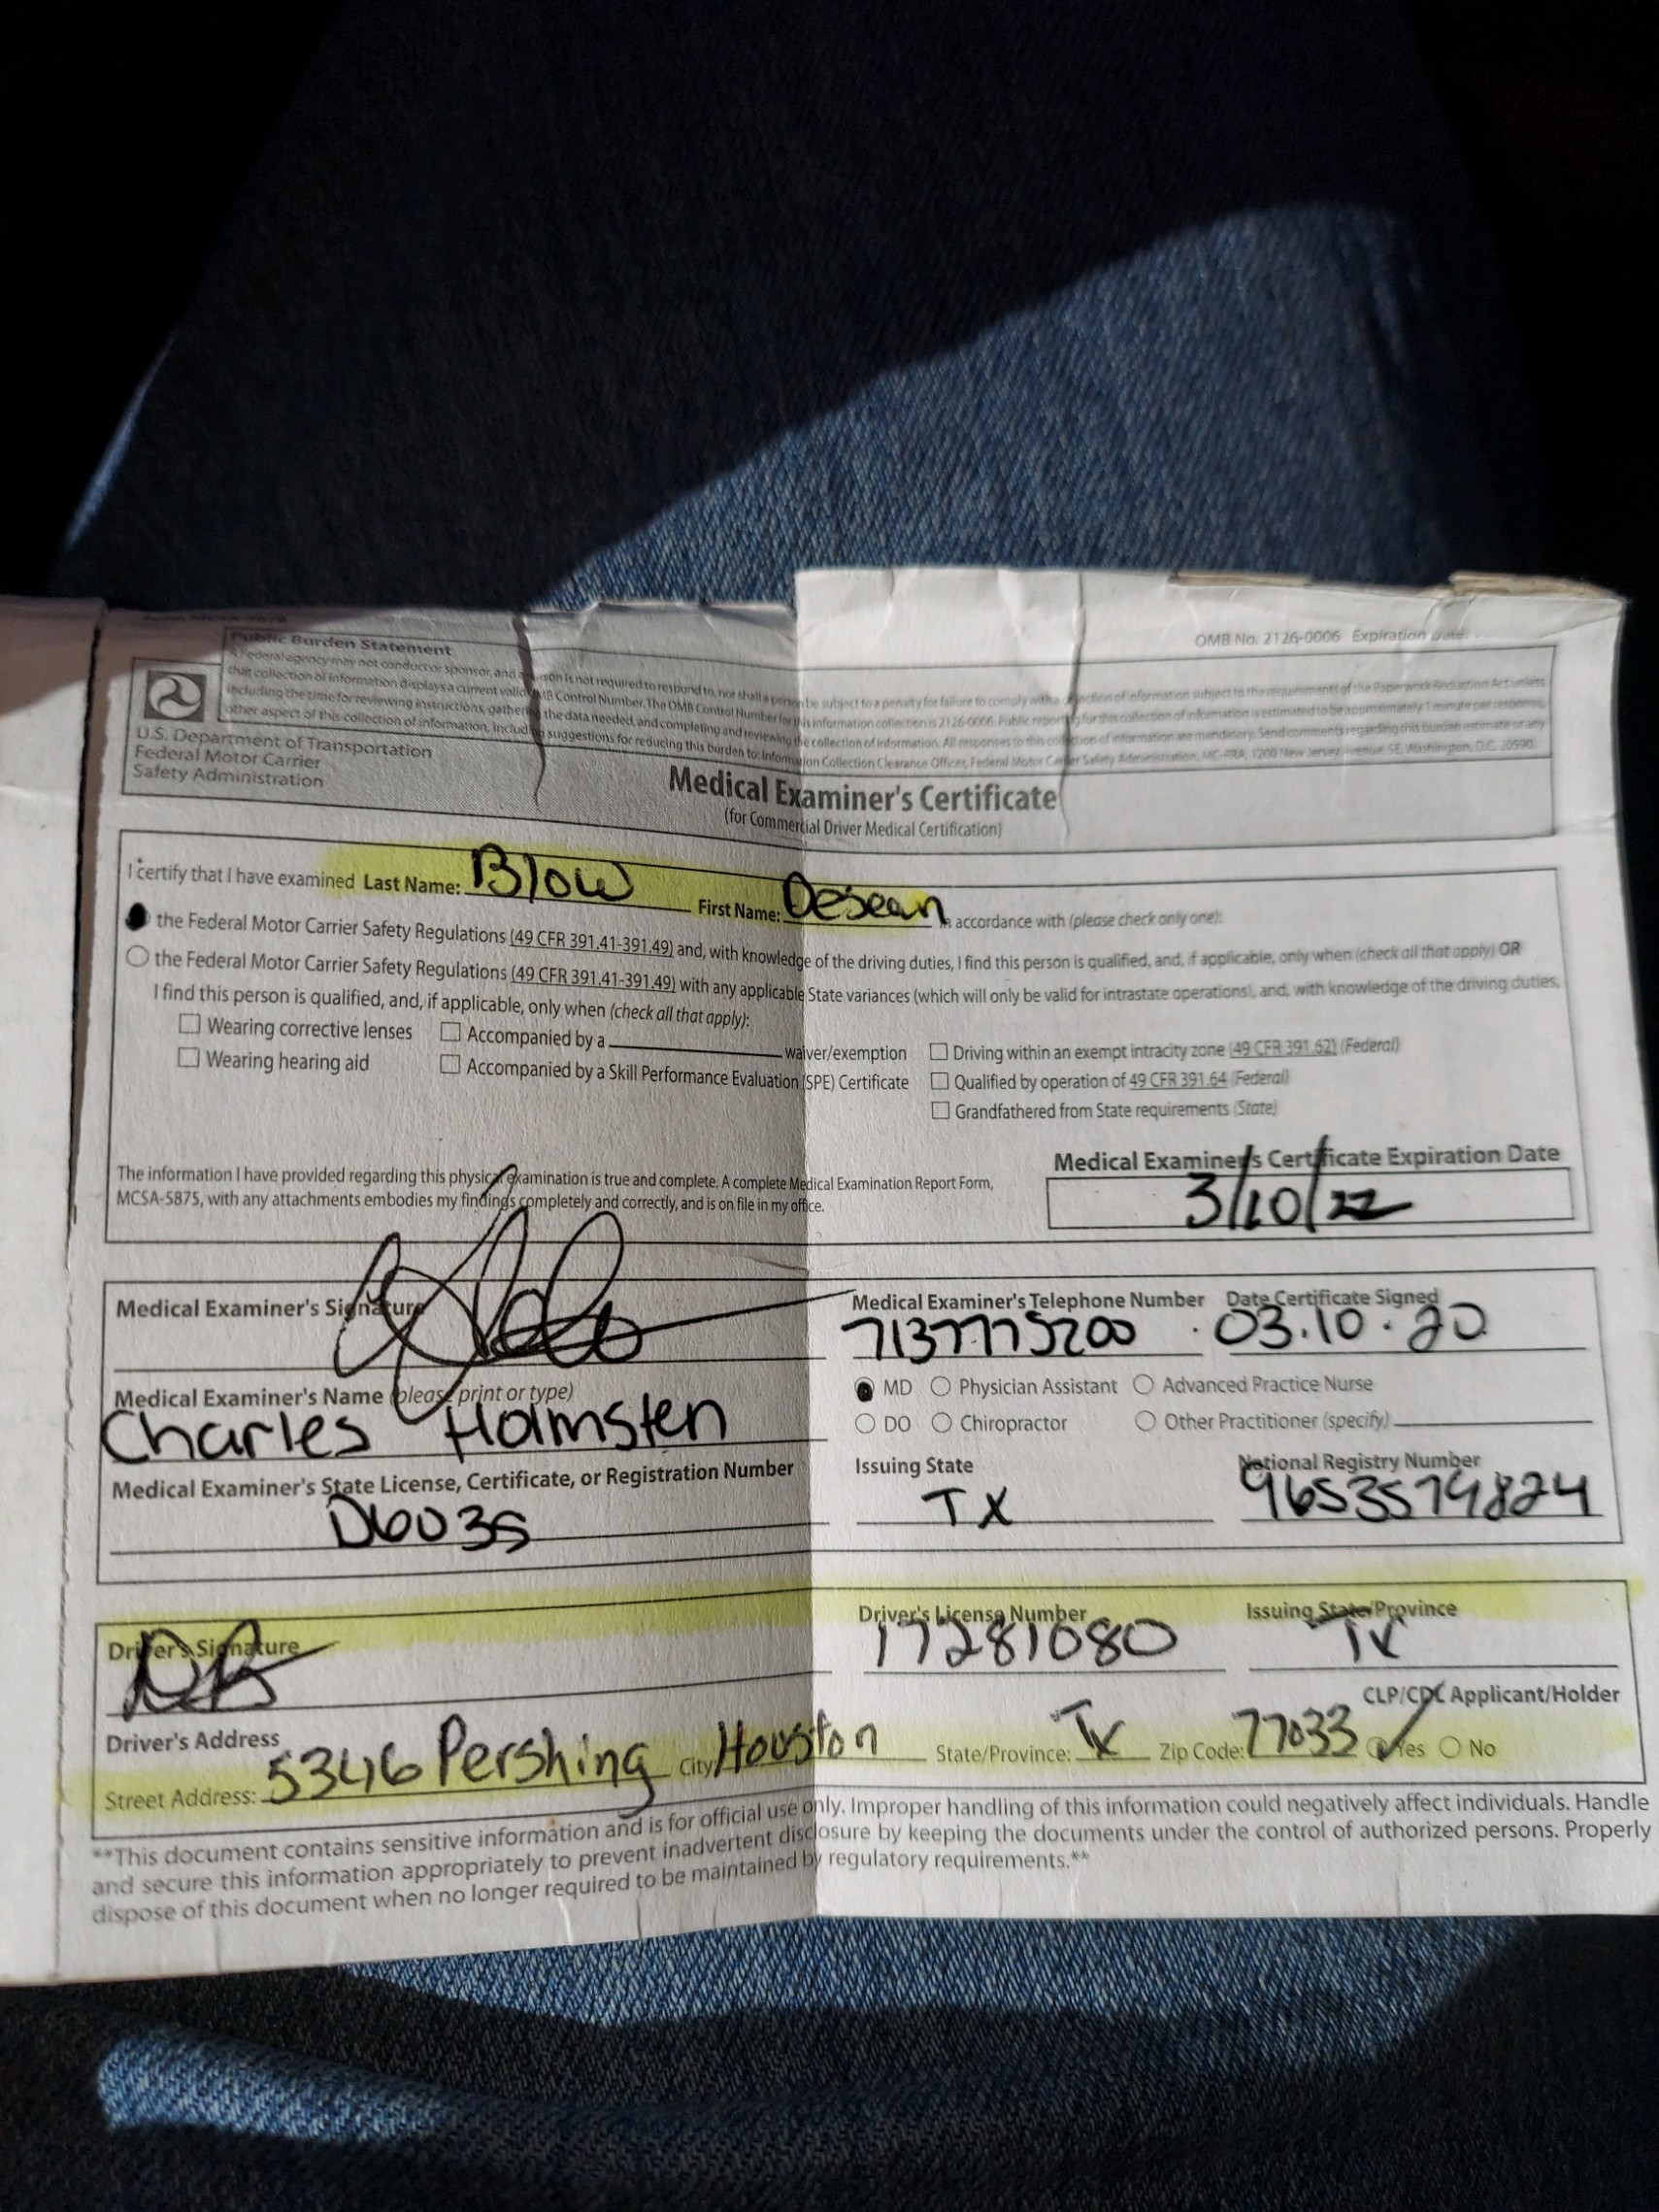 Public Burden Statement
OMB No. 2126-0006 Expiration Date:
A Federal agency may not conduct or sponsor, and a person is not required to respond to, nor shall a person be subject to a penalty for failure to comply with a collection of information subject to the requirements of the Paperwork Reduction Act unless
that collection of information displays a current valid OMB Control Number. The OMB Control Number for this information collection is 2126-0006. Public reporting for this collection of information is estimated to be approximately 1 minute per response,
including the time for reviewing instructions, gathering the data needed, and completing and reviewing the collection of information. All responses to this collection of information are mandatory. Send comments regarding this burden estimate or any
other aspect of this collection of information, including suggestions for reducing this burden to: Information Collection Clearance Officer, Federal Motor Carrier Safety Administration, MC-RRA, 1200 New Jersey Avenue, SE, Washington, D.C. 20590.
U.S. Department of Transportation
Federal Motor Carrier
Safety Administration
Medical Examiner's Certificate
(for Commercial Driver Medical Certification)
I certify that I have examined Last Name: Blow First Name: Desean in accordance with (please check only one):
the Federal Motor Carrier Safety Regulations (49 CFR 391.41-391.49) and, with knowledge of the driving duties, I find this person is qualified, and, if applicable, only when (check all that apply) OR
the Federal Motor Carrier Safety Regulations (49 CFR 391.41-391.49) with any applicable State variances (which will only be valid for intrastate operations), and, with knowledge of the driving duties,
I find this person is qualified, and, if applicable, only when (check all that apply):
Wearing corrective lenses Accompanied by a waiver/exemption Driving within an exempt intracity zone (49 CFR 391.62) (Federal)
Wearing hearing aid Accompanied by a Skill Performance Evaluation (SPE) Certificate Qualified by operation of 49 CFR 391.64 (Federal)
Grandfathered from State requirements (State)
The information I have provided regarding this physical examination is true and complete. A complete Medical Examination Report Form,
MCSA-5875, with any attachments embodies my findings completely and correctly, and is on file in my office.
Medical Examiner's Certificate Expiration Date
3/10/22
Medical Examiner's Signature Medical Examiner's Telephone Number Date Certificate Signed
7137775200 03.10.20
Medical Examiner's Name (please print or type) MD Physician Assistant Advanced Practice Nurse
Charles Holmsten DO Chiropractor Other Practitioner (specify)
Medical Examiner's State License, Certificate, or Registration Number Issuing State National Registry Number
D6035 TX 9653579824
Driver's Signature Driver's License Number Issuing State/Province
DB 17281080 Tx
Driver's Address CLP/CDL Applicant/Holder
Street Address: 5346 Pershing City: Houston State/Province: Tx Zip Code: 77033 Yes No
**This document contains sensitive information and is for official use only. Improper handling of this information could negatively affect individuals. Handle
and secure this information appropriately to prevent inadvertent disclosure by keeping the documents under the control of authorized persons. Properly
dispose of this document when no longer required to be maintained by regulatory requirements.**